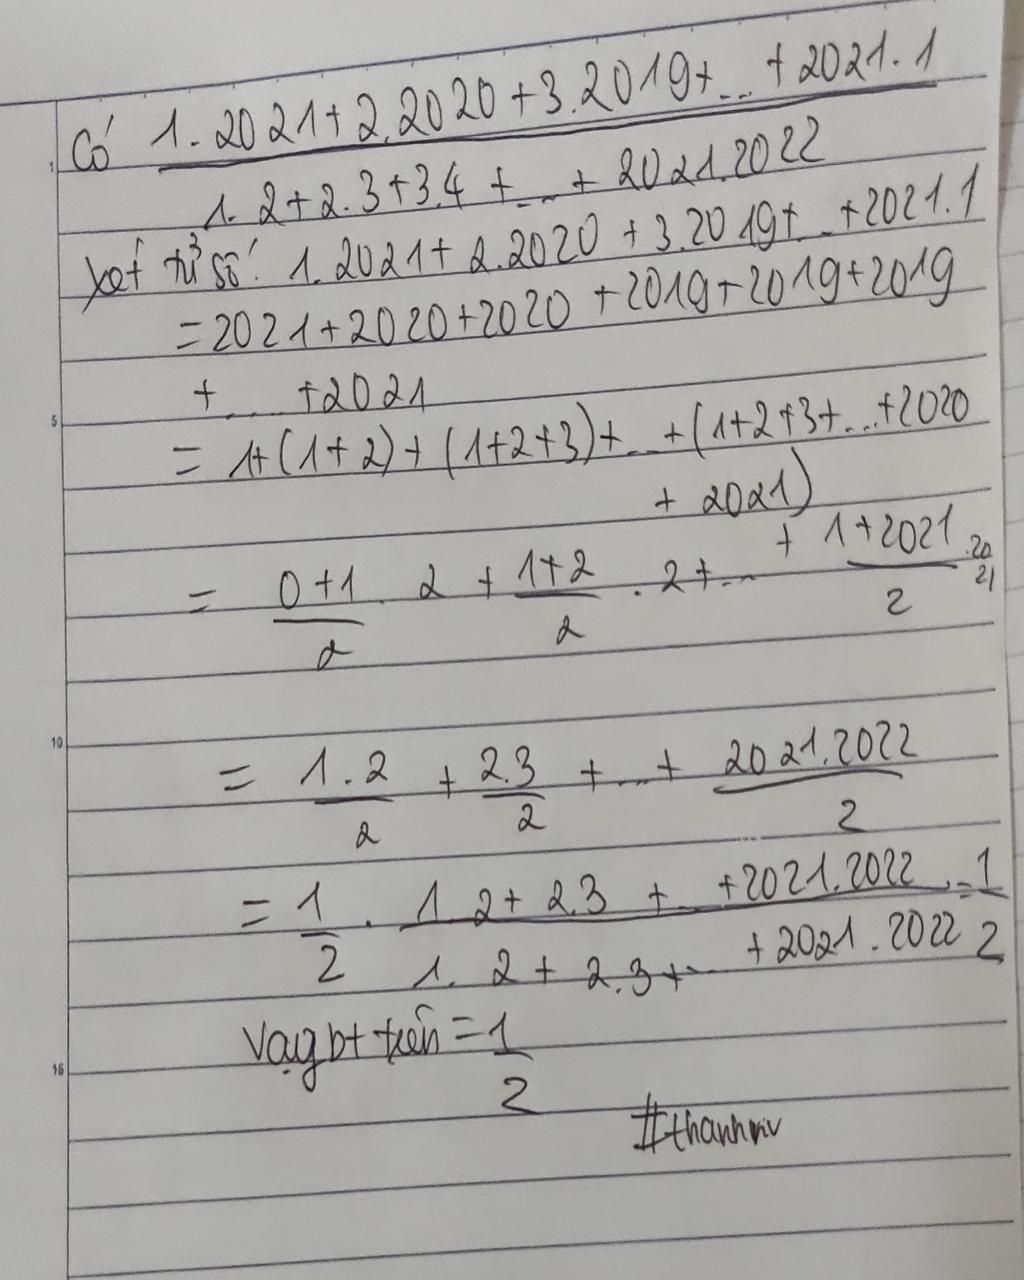 Có 1.2021+2.2020+3.2019+...+2021.1
1.2+2.3+3.4+...+2021.2022
xét tử số: 1.2021+2.2020+3.2019+...+2021.1
=2021+2020+2020+2019+2019+2019
+...+2021
=1+(1+2)+(1+2+3)+...+(1+2+3+...+2020
+2021)
= 0+1/2 . 2 + 1+2/2 . 2+...+ 1+2021/2 . 2021
= 1.2/2 + 2.3/2 +...+ 2021.2022/2
= 1/2 . 1.2+2.3+...+2021.2022 / 1.2+2.3+...+2021.2022 = 1/2
Vậy bt trên = 1/2